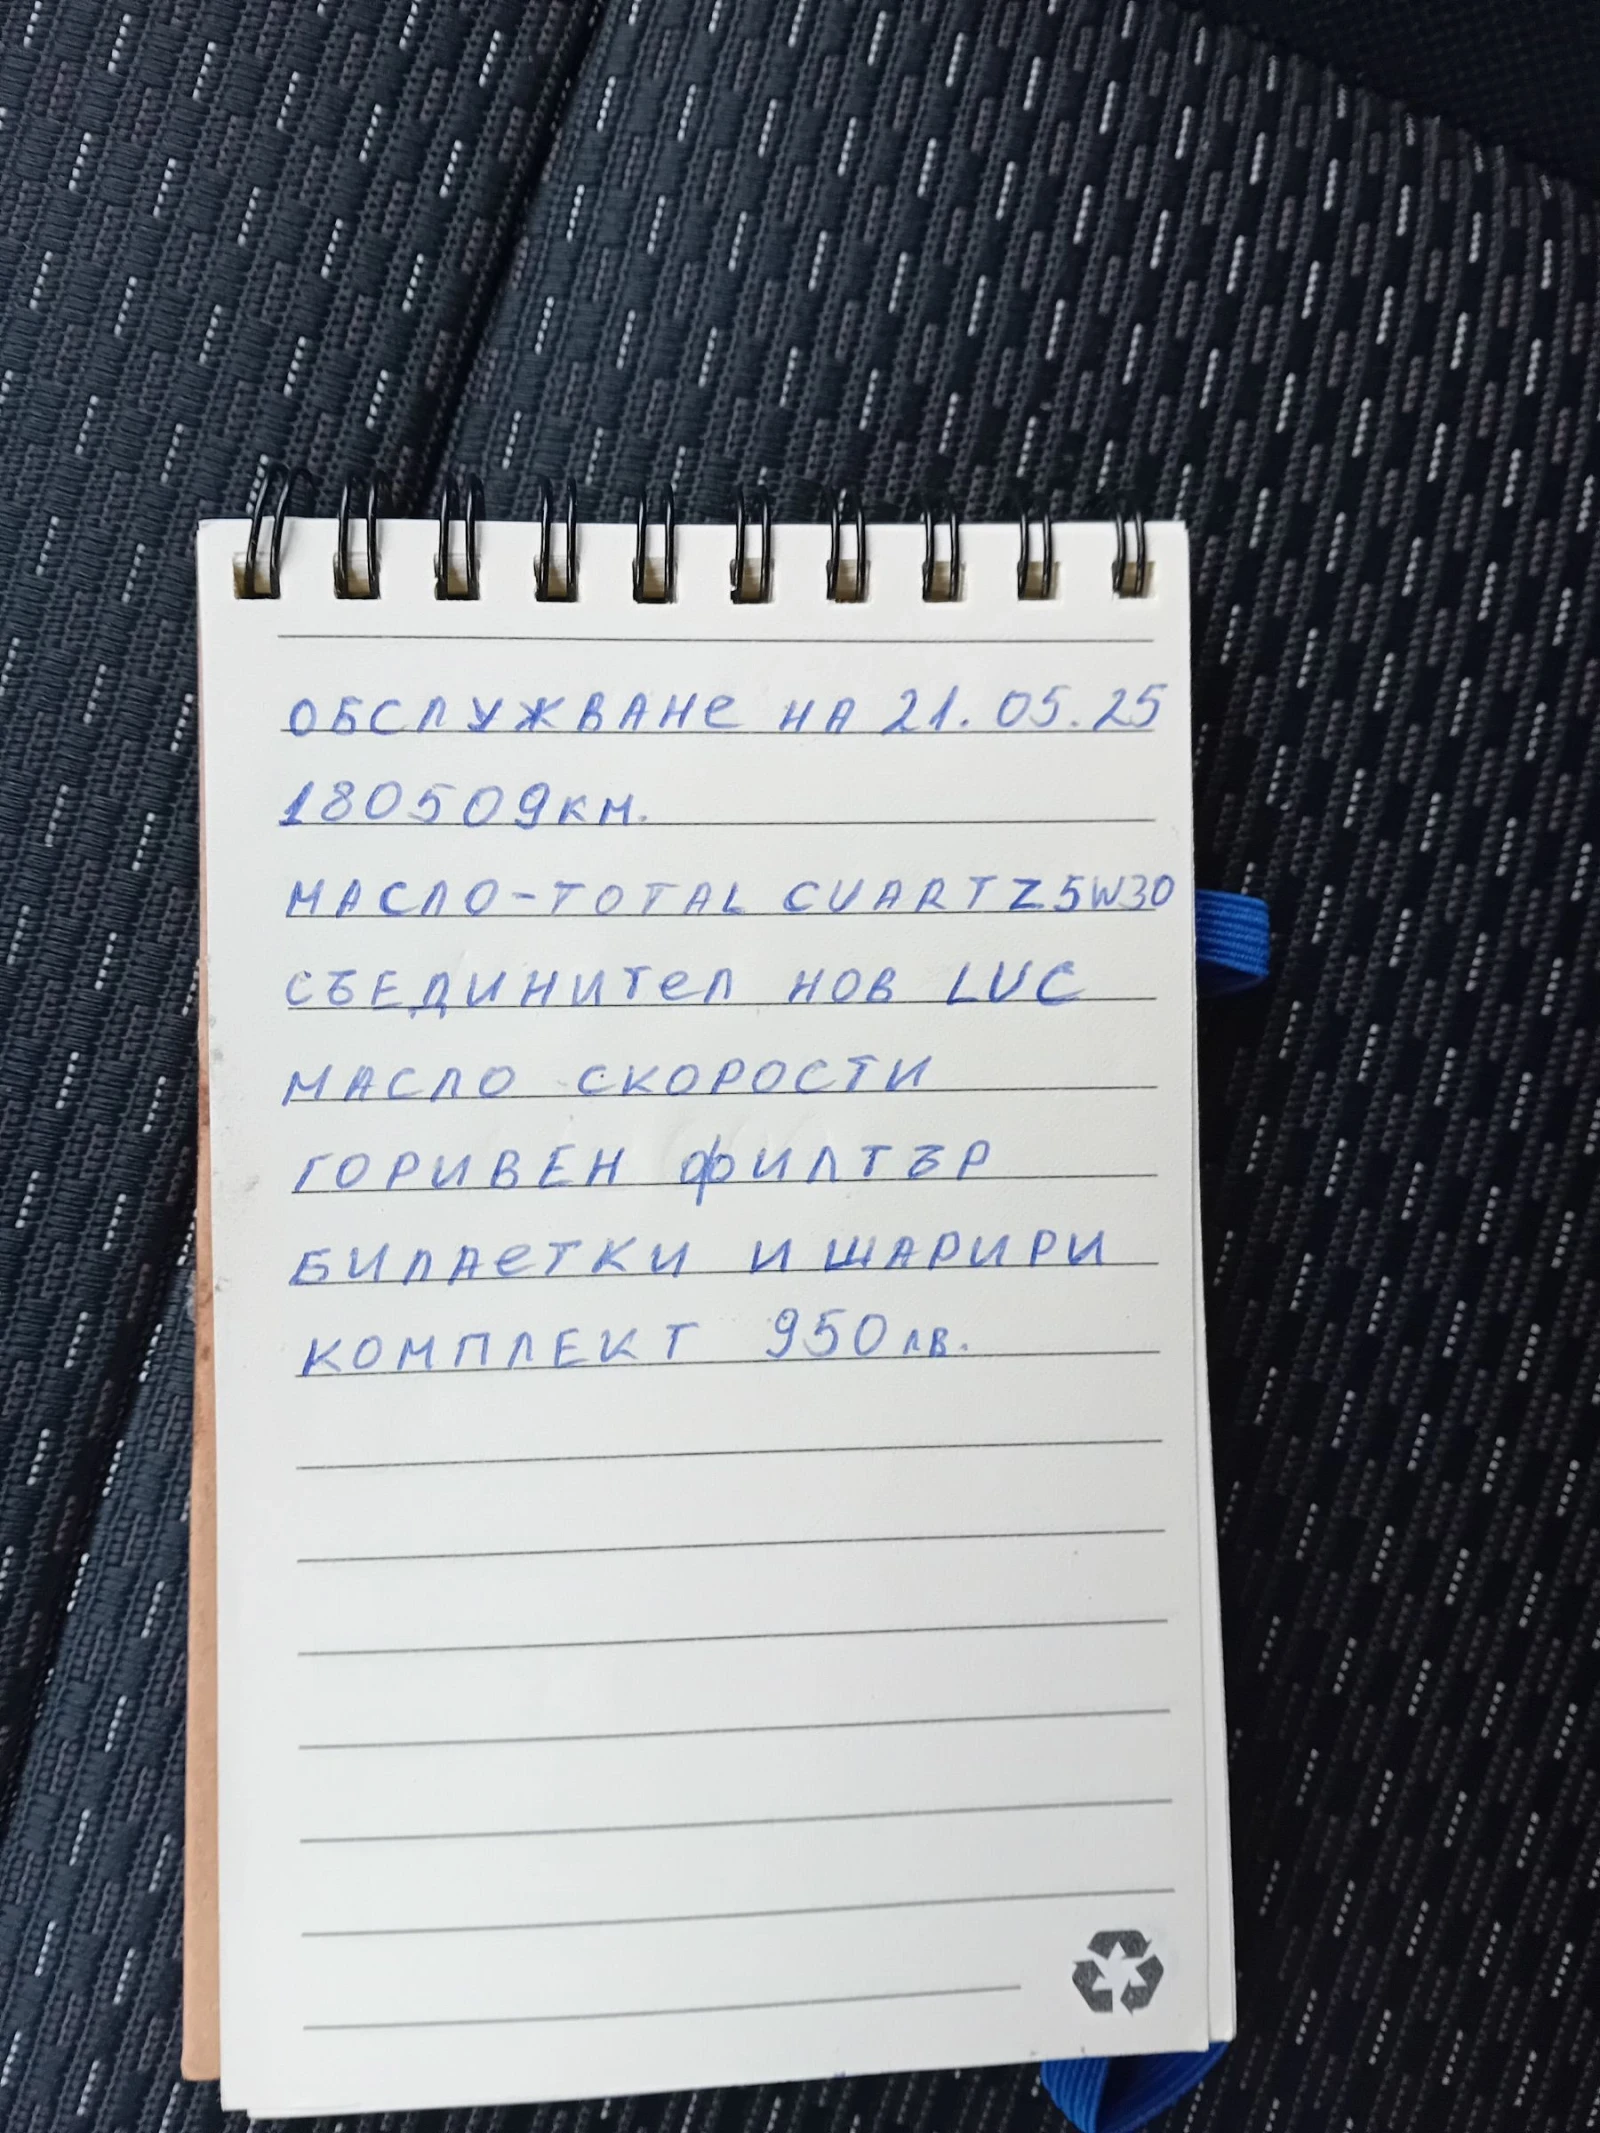 ОБСЛУЖВАНе НА 21.05.25
180509км.
МАСЛО-TOTAL CUARTZ5W30
СЪЕДИНИТел НОВ LUC
МАСЛО СКОРОСТИ
ГОРИВЕН ФИЛТЪР
БИЛАеТКИ И ШАРИРИ
КОМПЛЕКТ 950лв.